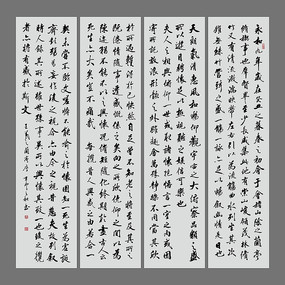 永和九年歲在癸丑暮春之初會于會稽山陰之蘭亭
脩禊事也群賢畢至少長咸集此地有崇山峻領茂林脩
竹又有清流激湍映帶左右引以為流觴曲水列坐其次
雖無絲竹管弦之盛一觴一詠亦足以暢敘幽情是日也
天朗氣清惠風和暢仰觀宇宙之大俯察品類之盛
所以遊目騁懷足以極視聽之娛信可樂也
夫人之相與俯仰一世或取諸懷抱悟言一室之內或因
寄所託放浪形骸之外雖趣舍萬殊靜躁不同當其欣
於所遇暫得於己快然自足不知老之將至及其所之既
倦情隨事遷感慨係之矣向之所欣俛仰之間以為
陳迹猶不能不以之興懷況脩短隨化終期於盡古人云
死生亦大矣豈不痛哉每覽昔人興感之由若合一
契未嘗不臨文嗟悼不能喻之於懷固知一死生為虛誕
齊彭殤為妄作後之視今亦由今之視昔悲夫故列敘
時人錄其所述雖世殊事異所以興懷其致一也後之覽
者亦將有感於斯文